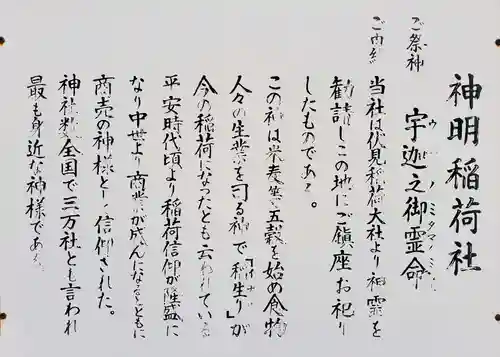 神明稲荷社
ご祭神 宇迦之御霊命
ウカノミタマノミコト
ご由緒
当社は伏見稲荷大社より神霊を
勧請しこの地にご鎮座お祀り
したものである。
この神は米麦等五穀を始め食物
人々の生業を司る神で「稲生り」が
今の稲荷になったとも云われている
平安時代頃より稲荷信仰が隆盛に
なり中世より商業が盛んになるともに
商売の神様として信仰された。
神社数全国で三万社とも言われ
最も身近な神様である。